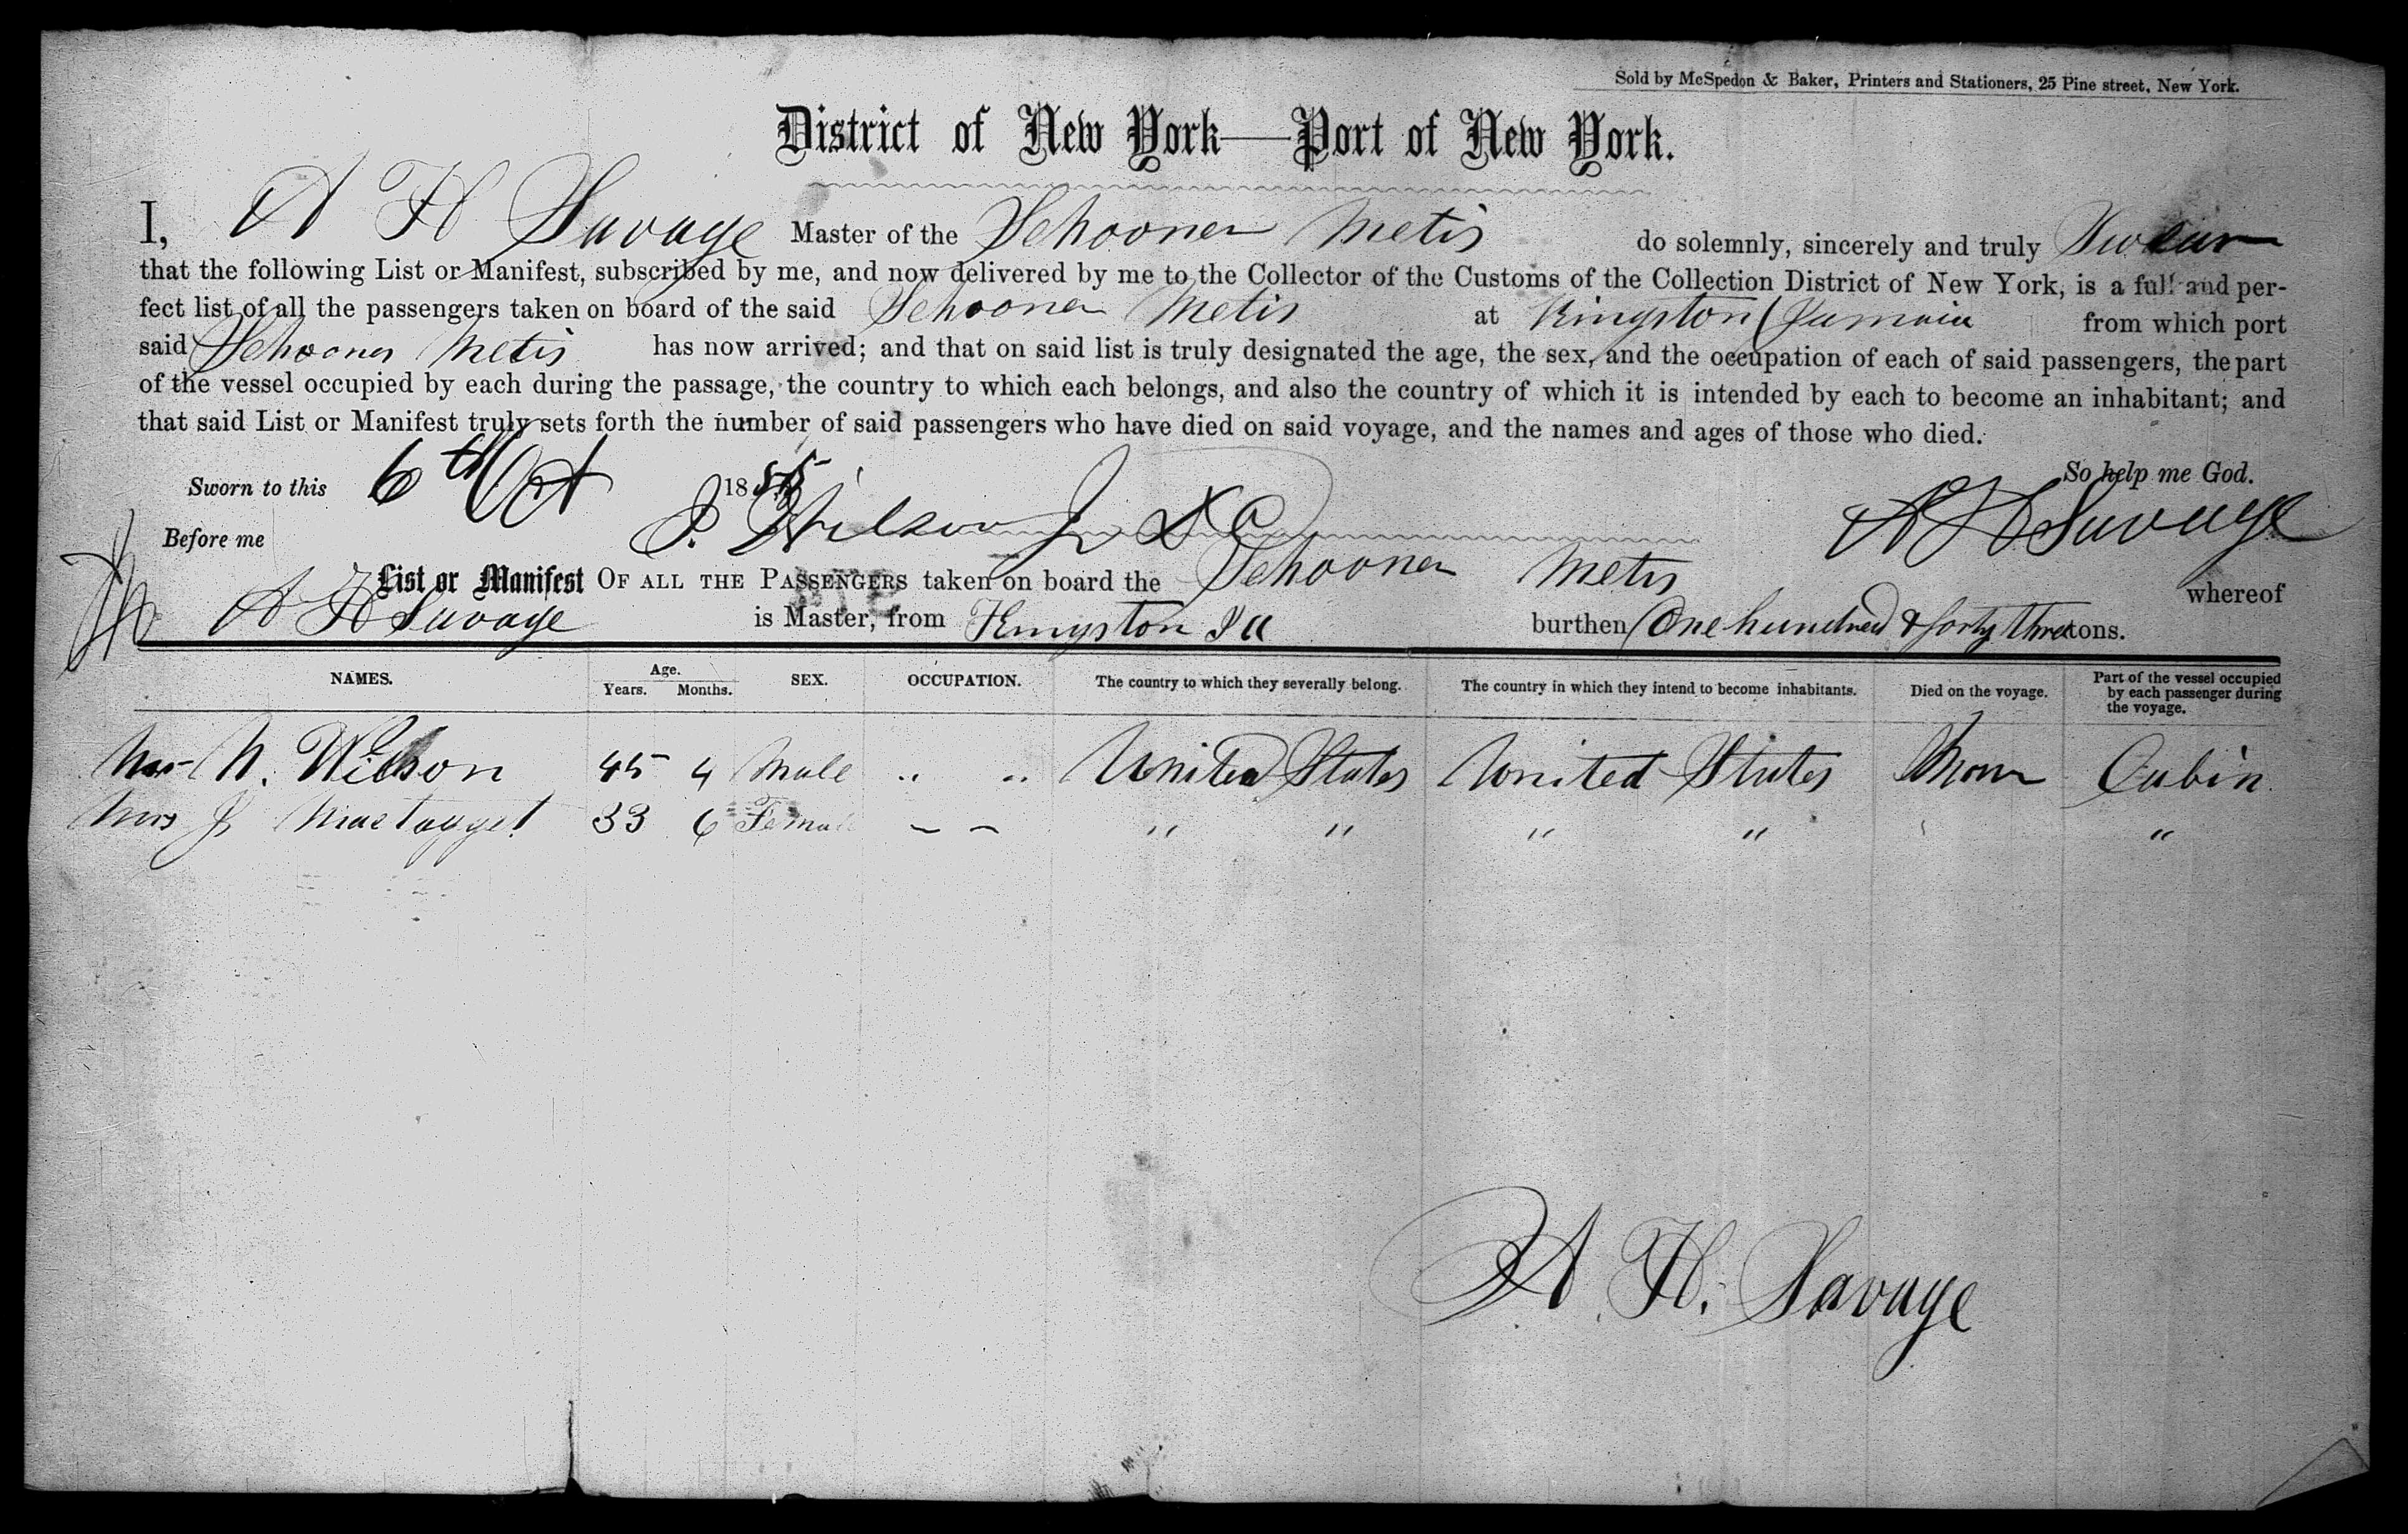 Sold by McSpedon & Baker, Printers and Stationers, 25 Pine street, New York.
District of New York—Port of New York.
I, A H Savage Master of the Schooner Metis do solemnly, sincerely and truly Swear
that the following List or Manifest, subscribed by me, and now delivered by me to the Collector of the Customs of the Collection District of New York, is a full and per-
fect list of all the passengers taken on board of the said Schooner Metis at Kingston (Jamaia from which port
said Schooner Metis has now arrived; and that on said list is truly designated the age, the sex, and the occupation of each of said passengers, the part
of the vessel occupied by each during the passage, the country to which each belongs, and also the country of which it is intended by each to become an inhabitant; and
that said List or Manifest truly sets forth the number of said passengers who have died on said voyage, and the names and ages of those who died.
So help me God.
Sworn to this 6th Oct 1855
Before me J. Wilson Jr D C A H Savage
List or Manifest OF ALL THE PASSENGERS taken on board the Schooner Metis whereof
A H Savage is Master, from Kingston Ja burthen One hundred & forty three tons.
NAMES. Age. Years. Months. SEX. OCCUPATION. The country to which they severally belong. The country in which they intend to become inhabitants. Died on the voyage. Part of the vessel occupied by each passenger during the voyage.
N. Wilson 45 4 Male " " United States United States None Cabin
Mrs J Mactagget 33 6 Female – – " " " " "
A. H. Savage